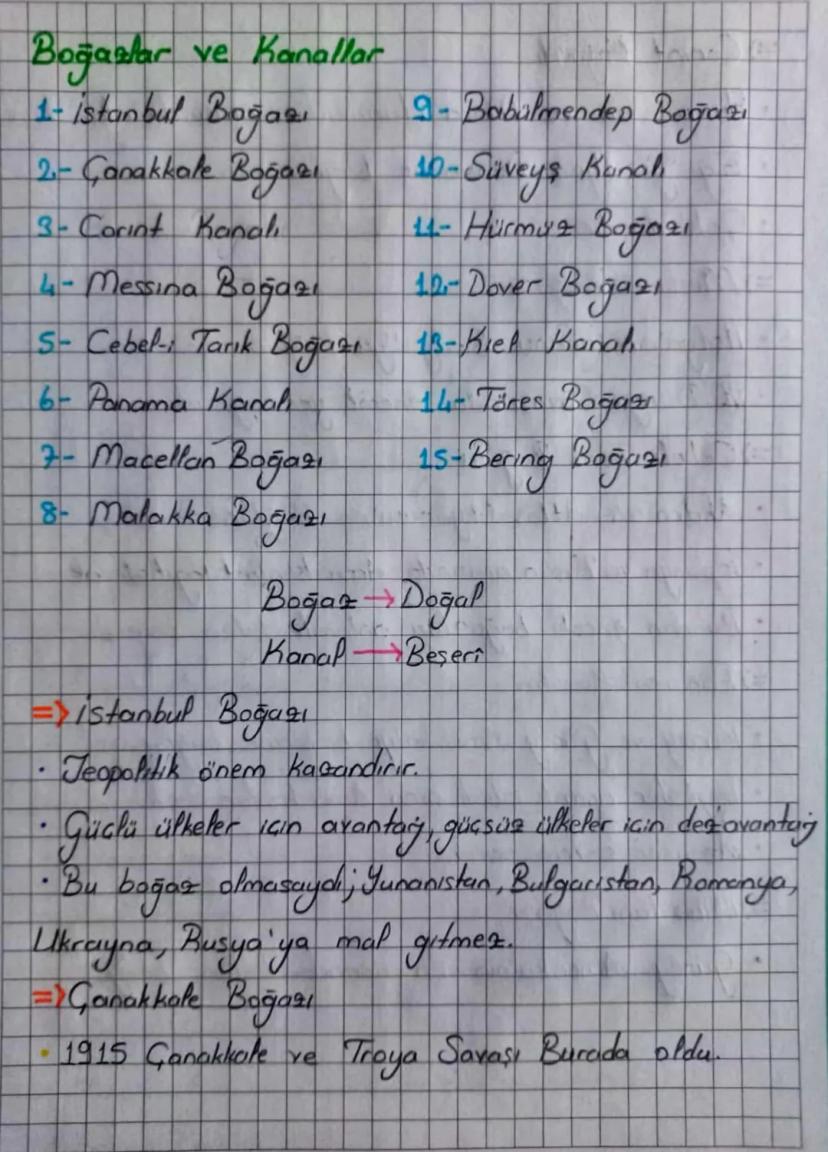 Boğazlar ve Kanallar
1- istanbul Boğazı
2- Çanakkale Boğazı
3- Corint Kanalı
4- Messina Boğazı
5- Cebel-i Tarık Boğazı
6- Panama Kanalı
7- Macellan Boğazı
8- Malakka Boğazı
9- Babülmendep Boğazı
10- Süveyş Kanalı
11- Hürmüz Boğazı
12- Dover Boğazı
13- Kiel Kanalı
14- Töres Boğazı
15- Bering Boğazı
Boğaz → Doğal
Kanal → Beşerî
=> istanbul Boğazı
· Jeopolitik önem kazandırır.
· Güçlü ülkeler için avantaj, güçsüz ülkeler için dezavantaj
· Bu boğaz olmasaydı; Yunanistan, Bulgaristan, Romanya,
Ukrayna, Rusya'ya mal gitmez.
=> Çanakkale Boğazı
· 1915 Çanakkale ve Troya Savaşı Burada oldu.